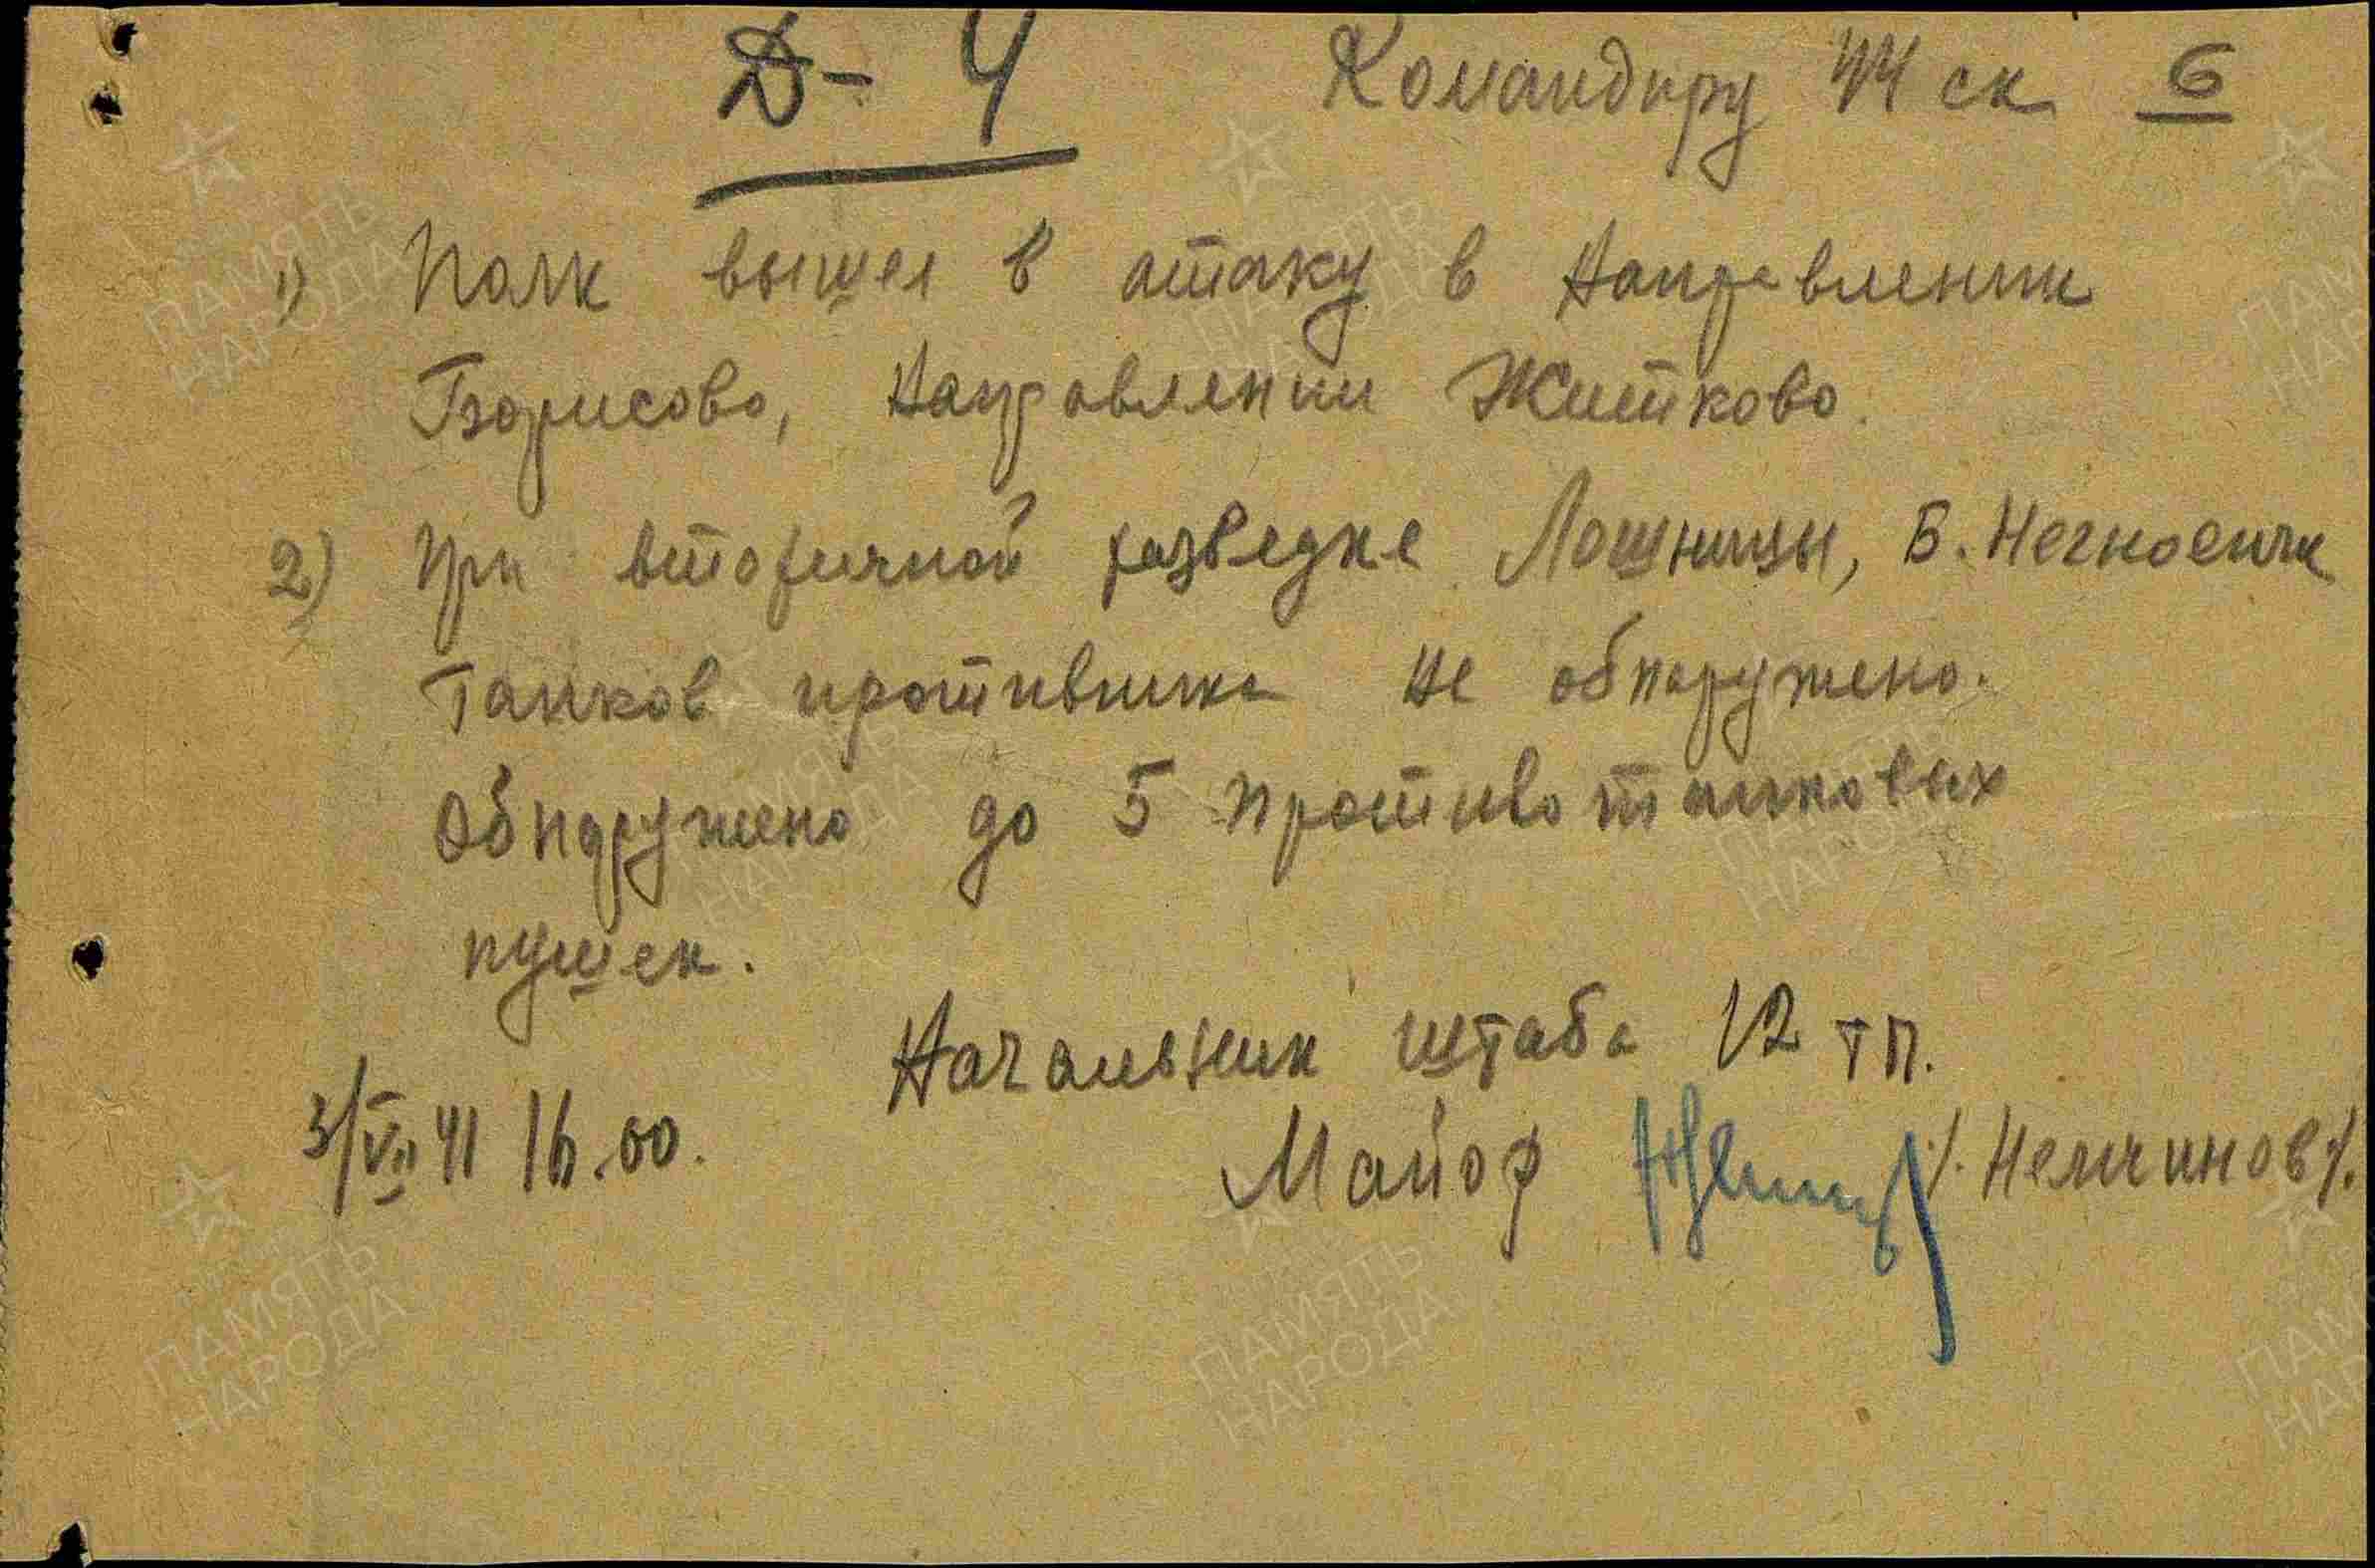 Д-4
Командиру 44 ск 6
1) Полк вышел в атаку в направлении
Борисово, направлении Житково.
2) При вторичной разведке Лошницы, Б. Негновичи
танков противника не обнаружено.
Обнаружено до 5 противотанковых
пушек.
Начальник штаба 12 тп.
3/VII 41 16.00.
Майор /. Немчинов /.
ПАМЯТЬ
НАРОДА